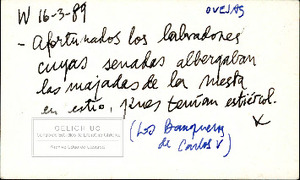 W 16-3-89
OVEJAS
- Afortunados los labradores
cuyas senadas albergaban
las majadas de la mesta
en estío, pues tenían estiércol.
(Los Banqueros
de Carlos V)
CELICH UC